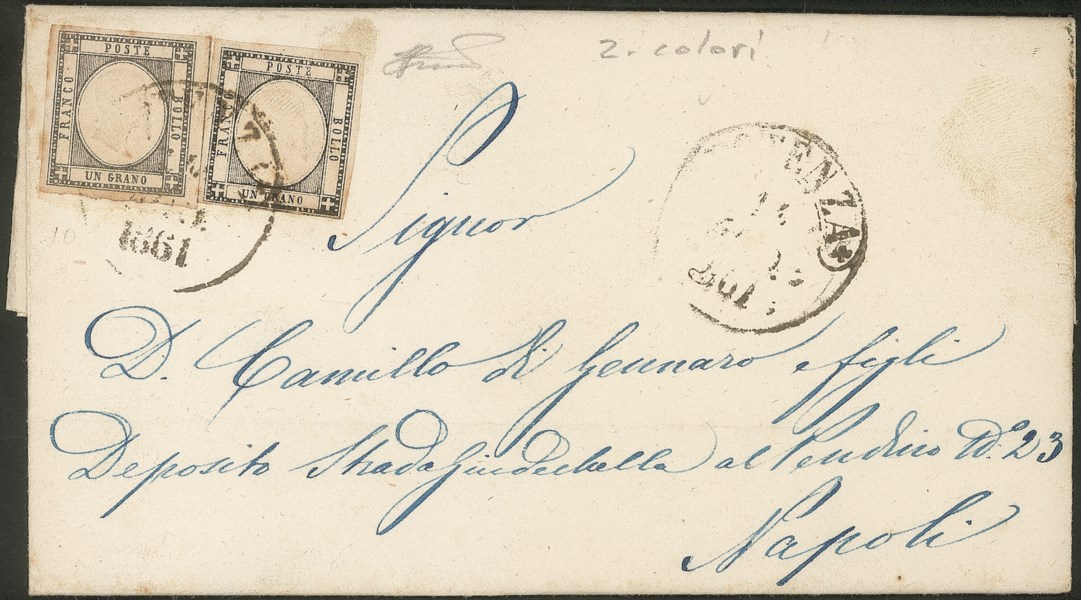 POSTE
FRANCO
BOLLO
UN GRANO
POSTE
FRANCO
BOLLO
UN GRANO
2. colori
1861
POTENZA
1861
Signor
D. Camillo di Gennaro e figli
Deposito Strada Giudechella al Pendino No. 23
Napoli